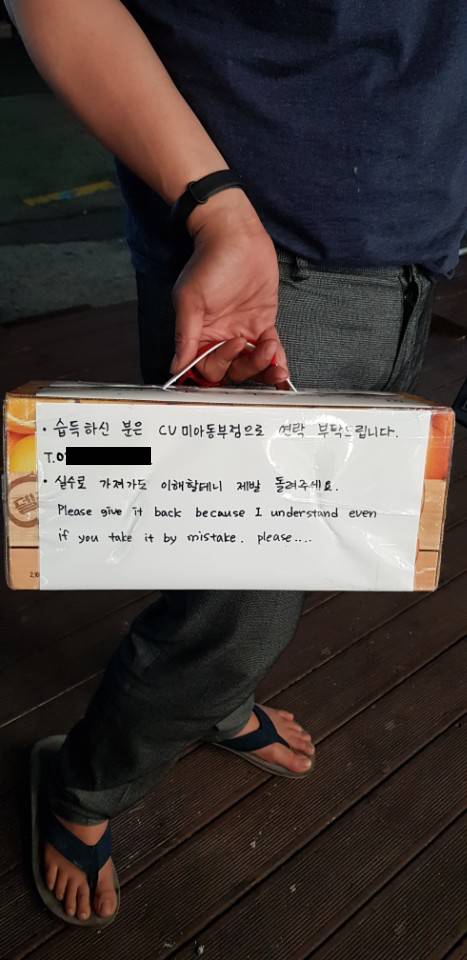 · 습득하신 분은 CV미아동부점으로 연락 부탁드립니다.
T.0
· 실수로 가져가도 이해할테니 제발 돌려주세요.
Please give it back because I understand even
if you take it by mistake. please....